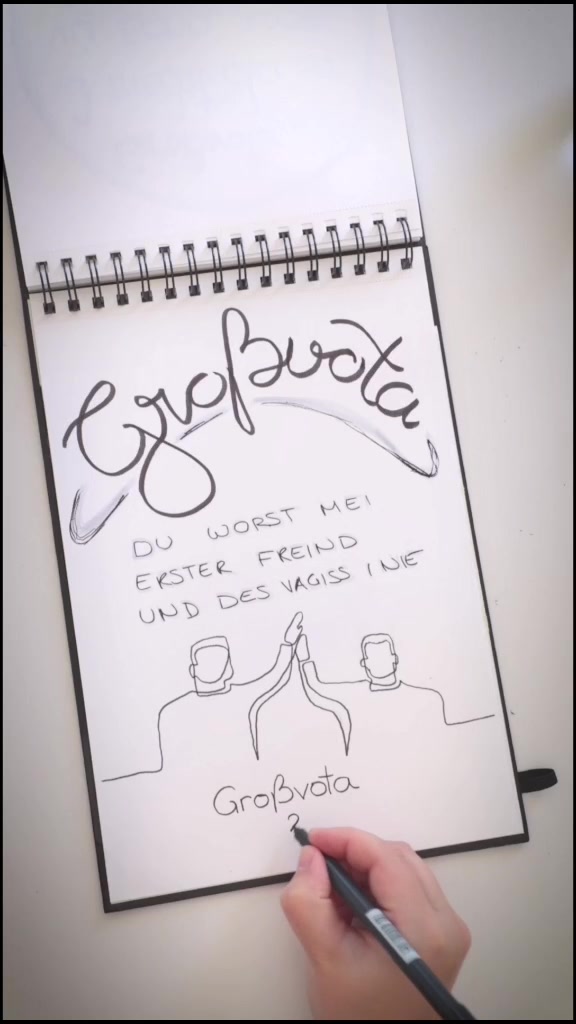 Großvota
DU WORST MEI
ERSTER FREIND
UND DES VAGISS I NIE
Großvota